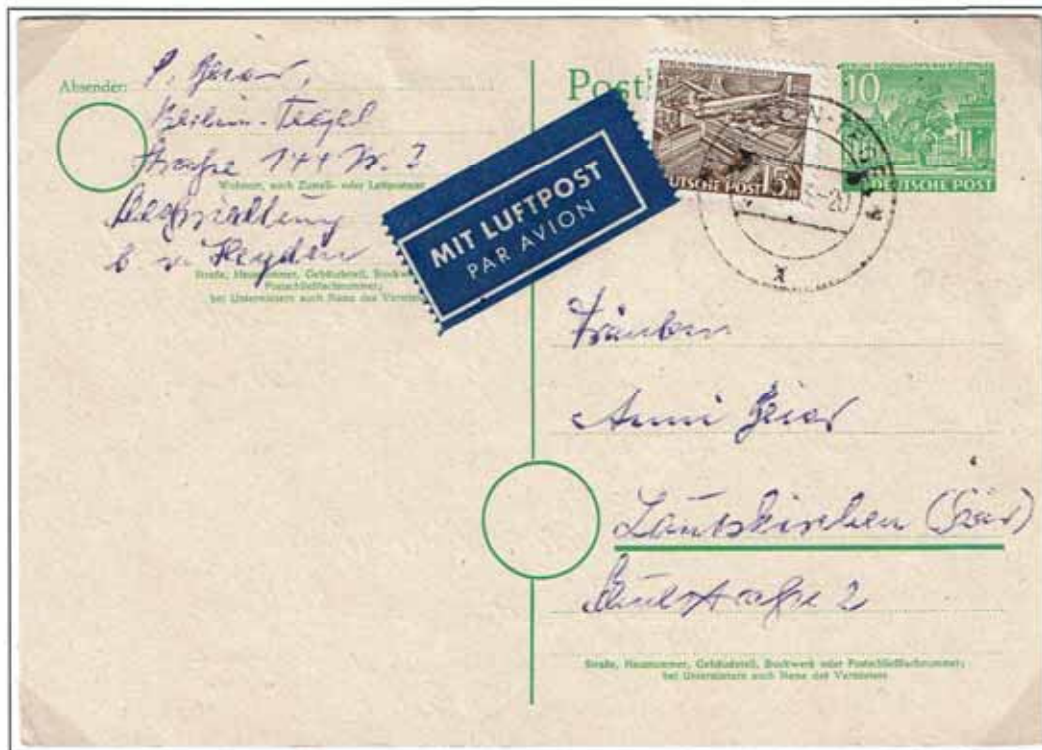 Absender:
Berlin-Tegel
Straße 144 Nr. 2
Wohnort, auch Zustell- oder Leitpostamt
b. v. Heyden
Straße, Hausnummer, Gebäudeteil, Stockwerk
Postschließfachnummer;
bei Untermietern auch Name des Vermieters
MIT LUFTPOST
PAR AVION
Post
1
DEUTSCHE POST 15
10
DEUTSCHE POST
-20
Fräulein
Anni
Lautzkirchen (Saar)
Schulstraße 2
Straße, Hausnummer, Gebäudeteil, Stockwerk oder Postschließfachnummer;
bei Untermietern auch Name des Vermieters